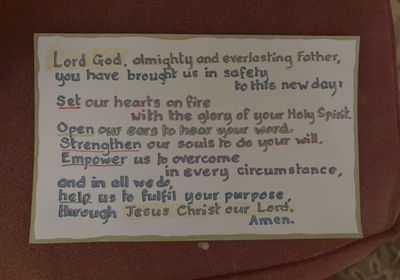 Lord God, almighty and everlasting Father,
you have brought us in safety
to this new day:
Set our hearts on fire
with the glory of your Holy Spirit.
Open our ears to hear your word.
Strengthen our souls to do your will.
Empower us to overcome
in every circumstance,
and in all we do,
help us to fulfil your purpose,
through Jesus Christ our Lord.
Amen.